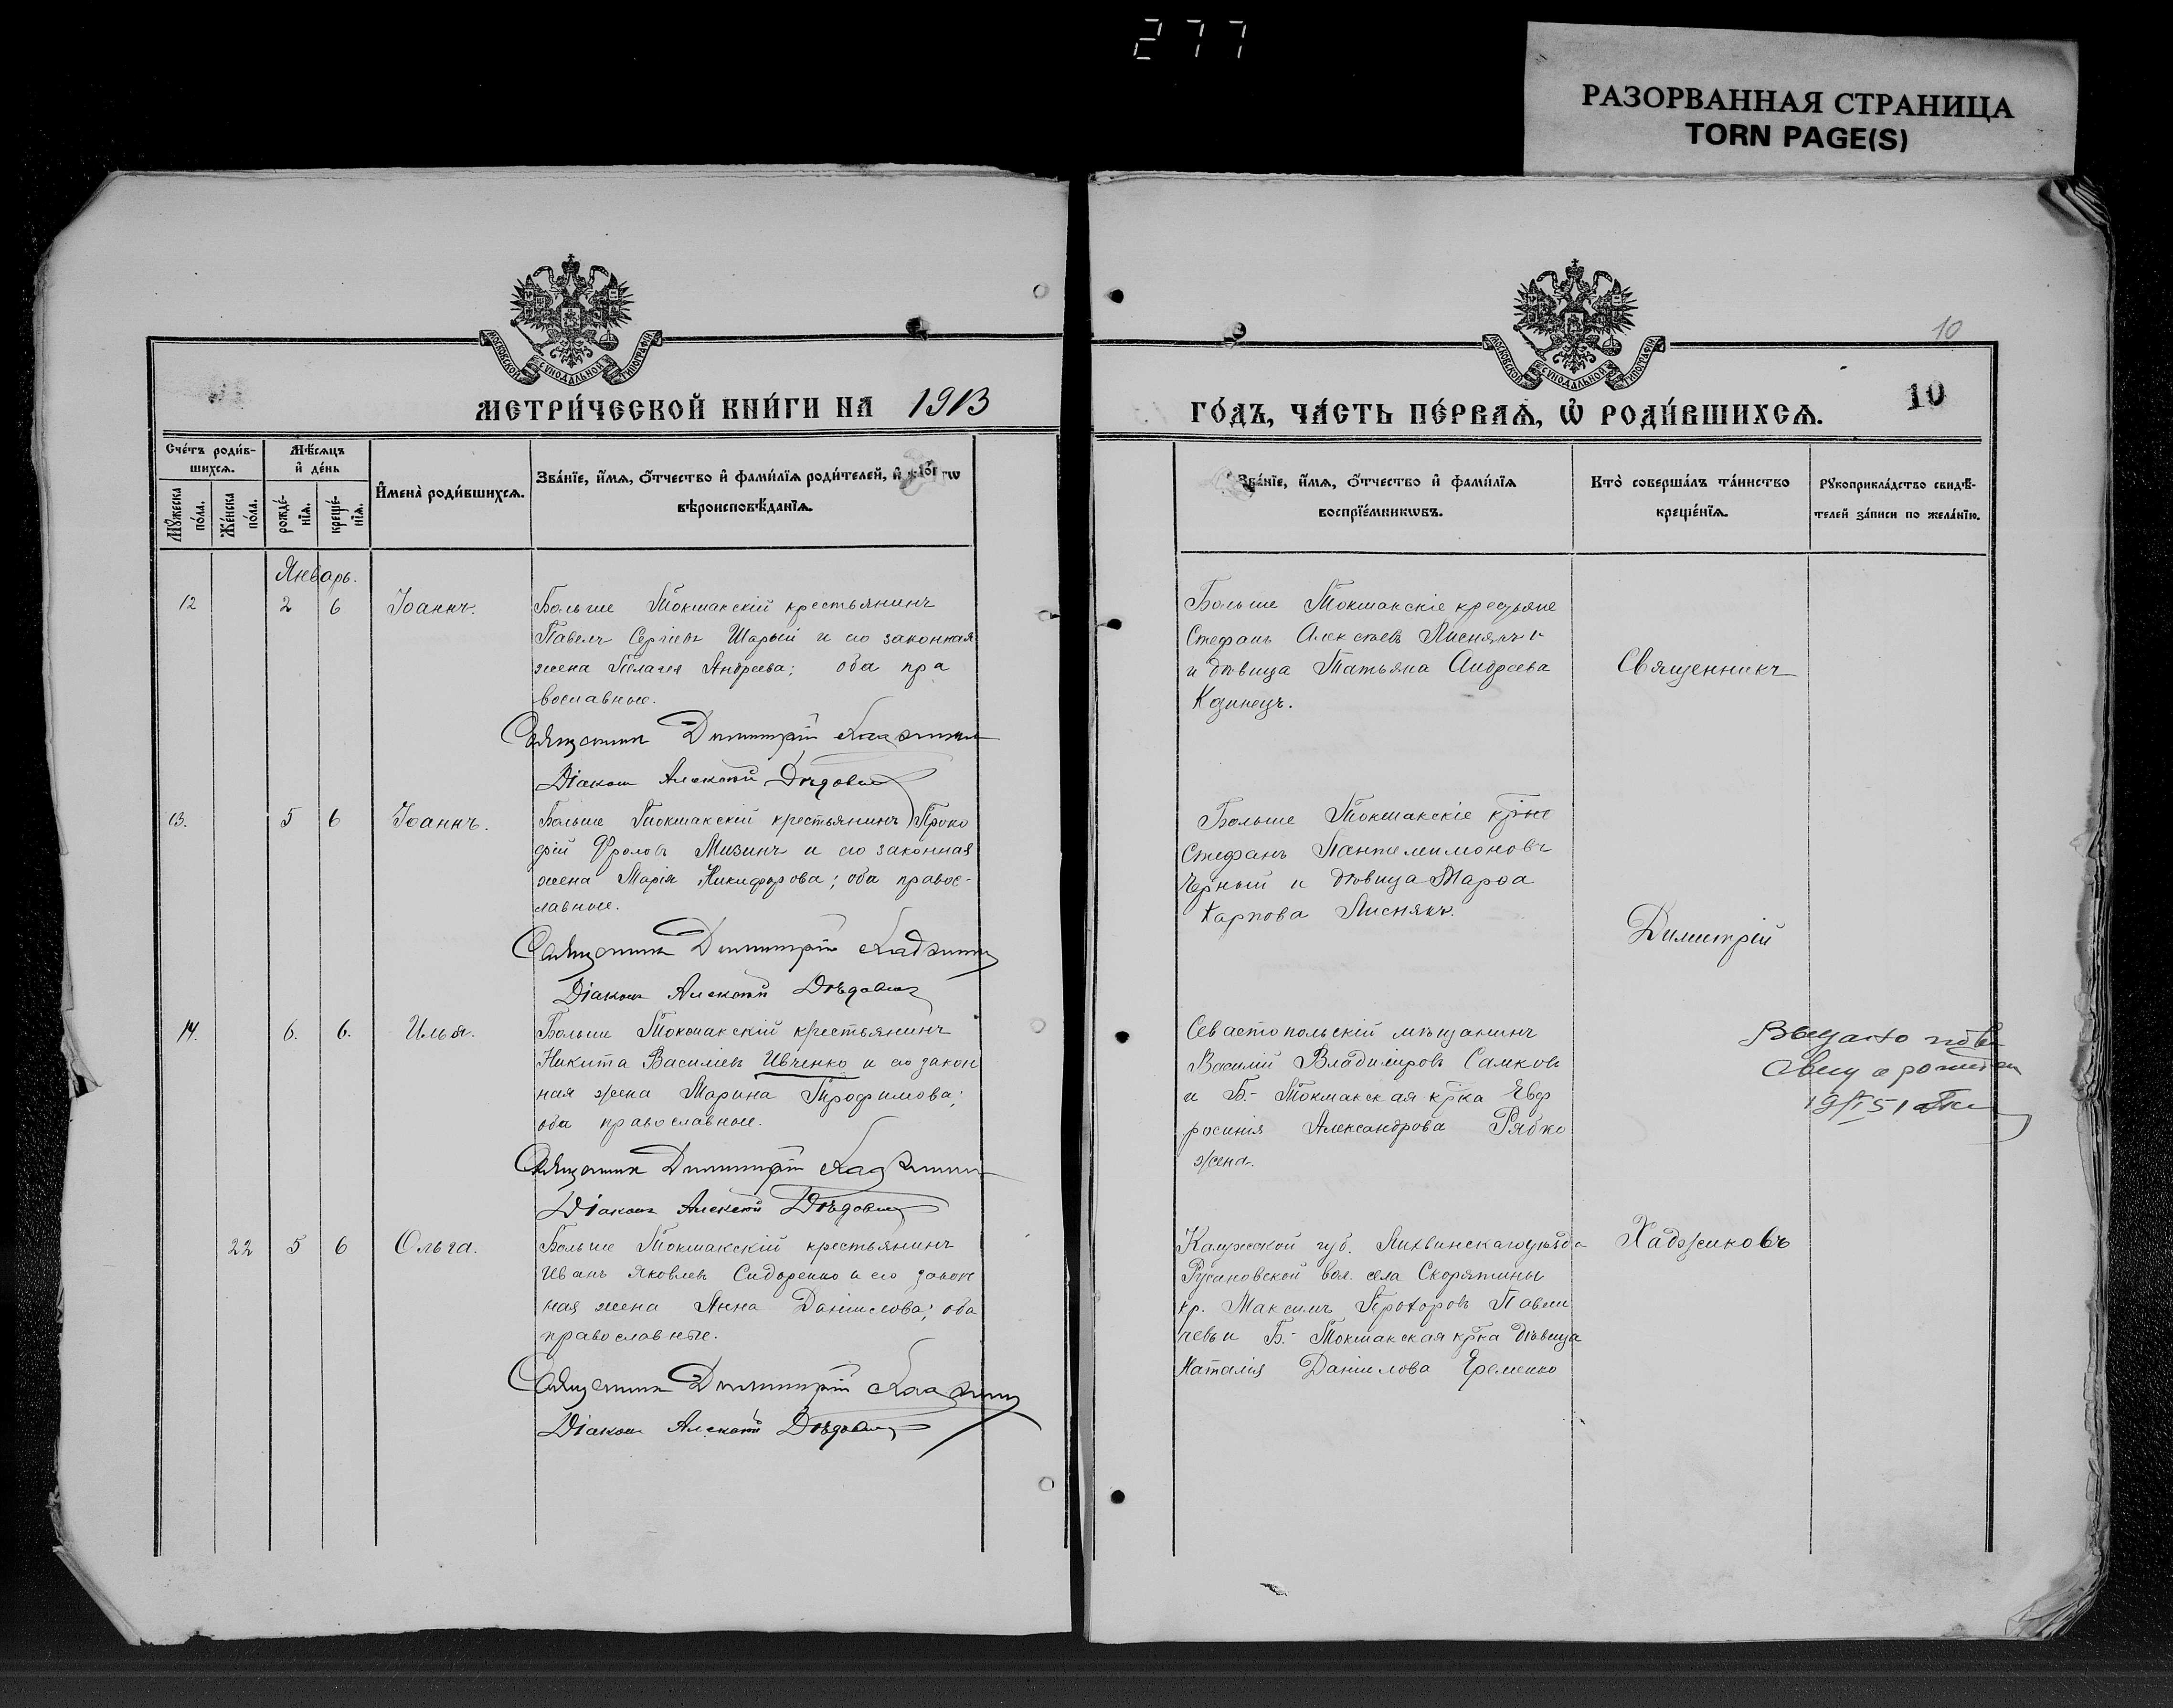 277
РАЗОРВАННАЯ СТРАНИЦА
TORN PAGE(S)
МОСКОВСКОЙ СѴНОДАЛЬНОЙ ТИПОГРАФІИ
МЕТРИ́ЧЕСКОЙ КНИ́ГИ НА 1913
Сче́тъ роди́в-
шихсѧ.
Мѣ́сѧцъ
и҆ де́нь
Мꙋ́жеска
по́ла.
Же́нска
по́ла.
рожде́-
нїѧ.
креще́-
нїѧ.
И҆мена̀ роди́вшихсѧ.
Зва́нїе, и҆́мѧ, ѻ҆́тчество и҆ фами́лїѧ роди́телей, и҆
вѣроисповѣ́данїѧ.
Январь.
12 2 6 Іоаннъ.
Больше Токмакскій крестьянинъ
Павелъ Сергіевъ Шарый и его законная
жена Пелагея Андреева; оба пра
вославные.
Священникъ Димитрій Хаджиковъ
Діаконъ Алексѣй Дѣдовъ
13. 5 6 Іоаннъ.
Больше Токмакскій крестьянинъ Проко
фій Фроловъ Мизинъ и его законная
жена Марія Никифорова; оба правос-
лавные.
Священникъ Димитрій Хаджиковъ
Діаконъ Алексѣй Дѣдовъ
14. 6. 6. Илья.
Больше Токмакскій крестьянинъ
Никита Василіевъ Ивченко и его закон
ная жена Марина Трофимова;
оба православные.
Священникъ Димитрій Хаджиковъ
Діаконъ Алексѣй Дѣдовъ
22 5 6 Ольга.
Больше Токмакскій крестьянинъ
Иванъ Яковлевъ Сидоренко и его закон
ная жена Анна Даниилова; оба
православные.
Священникъ Димитрій Хаджиковъ
Діаконъ Алексѣй Дѣдовъ
МОСКОВСКОЙ СѴНОДАЛЬНОЙ ТИПОГРАФІИ
10
10
ГО́ДЪ, ЧА́СТЬ ПЕ́РВАѦ, Ѡ҆ РОДИ́ВШИХСѦ.
Зва́нїе, и҆́мѧ, ѻ҆́тчество и҆ фами́лїѧ
воспрїе́мникѡвъ.
Кто̀ соверша́лъ та́инство
креще́нїѧ.
Рꙋкоприкла́дство свидѣ́-
телей за́писи по жела́нїю.
Больше Токмакскіе крестьяне
Стефанъ Алексѣевъ Лиснякъ
и дѣвица Татьяна Андреева
Кдинецъ.
Священникъ
Больше Токмакскіе кр-не
Стефанъ Пантелимоновъ
Черный и дѣвица Марфа
Карпова Лиснякъ.
Димитрій
Севастопольскій мѣщанинъ
Василій Владиміровъ Самковъ
и Б.- Токмакская кр-ка Евф
росинія Александрова Рябко
жена.
о рожден
19/I 51
Калужской губ. Лихвинскаго уѣзда
Русановской вол. села Скорятины
кр. Максимъ Прохоровъ Павли
чевъ и Б.- Токмакская кр-ка дѣвица
Наталія Даніилова Еременко
Хаджиковъ